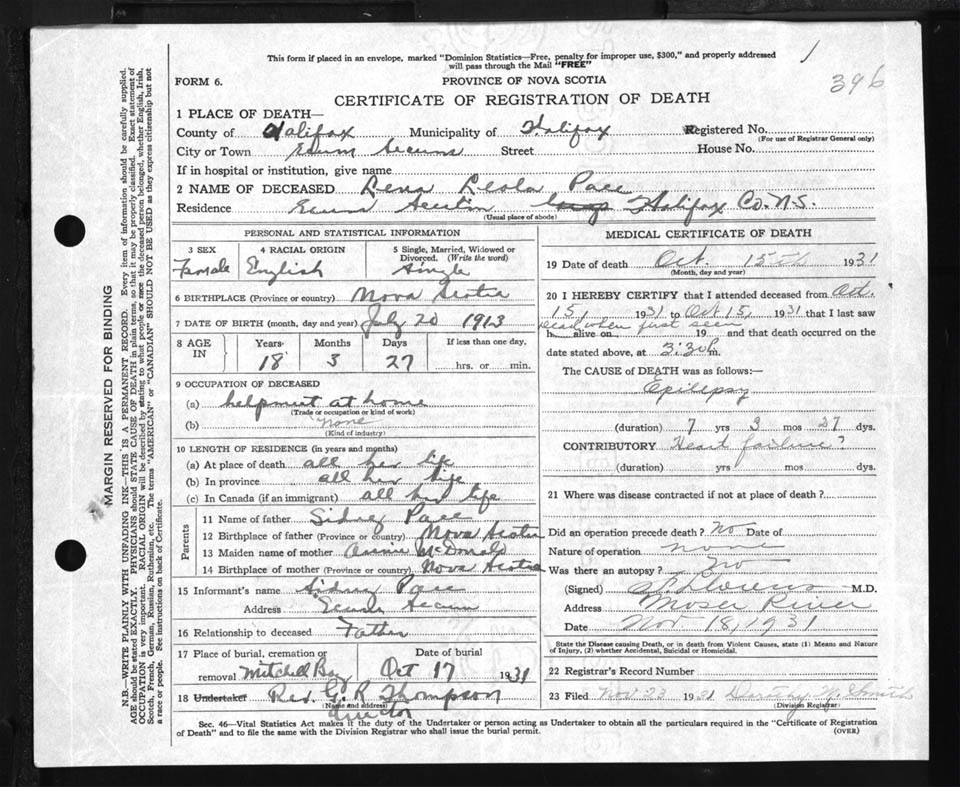 1
396
This form if placed in an envelope, marked "Dominion Statistics—Free, penalty for improper use, $300," and properly addressed
will pass through the Mail "FREE"
FORM 6.
PROVINCE OF NOVA SCOTIA
CERTIFICATE OF REGISTRATION OF DEATH
1 PLACE OF DEATH—
County of Halifax Municipality of Halifax Registered No.
(For use of Registrar General only)
City or Town Ecum Secum Street House No.
If in hospital or institution, give name
2 NAME OF DECEASED Lena Leola Pace
Residence Ecum Halifax Co. N.S.
(Usual place of abode)
PERSONAL AND STATISTICAL INFORMATION
3 SEX 4 RACIAL ORIGIN 5 Single, Married, Widowed or
Divorced. (Write the word)
Female English Single
6 BIRTHPLACE (Province or country) Nova Scotia
7 DATE OF BIRTH (month, day and year) July 20 1913
8 AGE IN Years Months Days If less than one day,
18 3 27 hrs. or min.
9 OCCUPATION OF DECEASED
(a) helpmut at home
(Trade or occupation or kind of work)
(b) none
(Kind of industry)
10 LENGTH OF RESIDENCE (in years and months)
(a) At place of death all her life
(b) In province all her life
(c) In Canada (if an immigrant) all her life
Parents
11 Name of father Sidney Pace
12 Birthplace of father (Province or country) Nova Scotia
13 Maiden name of mother Annie McDonald
14 Birthplace of mother (Province or country) Nova Scotia
15 Informant's name Sidney Pace
Address Ecum Secum
16 Relationship to deceased Father
17 Place of burial, cremation or Date of burial
removal Mitchell Bay Oct 17 1931
18 Undertaker Rev. G. R. Thompson
(Name and address)
director
MEDICAL CERTIFICATE OF DEATH
19 Date of death Oct. 15th 1931
(Month, day and year)
20 I HEREBY CERTIFY that I attended deceased from Oct.
15, 1931 to Oct 15, 1931 that I last saw
Dead when first seen
h alive on 19 and that death occurred on the
date stated above, at 3:30 m.
The CAUSE of DEATH was as follows:—
Epilepsy
(duration) 7 yrs 3 mos 27 dys.
CONTRIBUTORY Heart failure?
(duration) yrs mos dys.
21 Where was disease contracted if not at place of death?
Did an operation precede death? No Date of
Nature of operation none
Was there an autopsy? No
(Signed) M.D.
Address Moser River
Date Nov 18, 1931
State the Disease causing Death, or in death from Violent Causes, state (1) Means and Nature
of Injury, (2) whether Accidental, Suicidal or Homicidal.
22 Registrar's Record Number
23 Filed Nov 23 1931 Dorothy N. Smith
(Division Registrar)
Sec. 46—Vital Statistics Act makes it the duty of the Undertaker or person acting as Undertaker to obtain all the particulars required in the "Certificate of Registration
of Death" and to file the same with the Division Registrar who shall issue the burial permit.
(OVER)
MARGIN RESERVED FOR BINDING
N.B.—WRITE PLAINLY WITH UNFADING INK—THIS IS A PERMANENT RECORD. Every item of information should be carefully supplied.
AGE should be stated EXACTLY. PHYSICIANS should STATE CAUSE OF DEATH in plain terms, so that it may be properly classified. Exact statement of
OCCUPATION is very important. RACIAL ORIGIN will be described by stating to what people or race the deceased person belonged, whether English, Irish,
Scotch, French, German, Russian, Ruthenian, etc. The terms "AMERICAN" or "CANADIAN" SHOULD NOT BE USED as they express citizenship but not
a race or people. See instructions on back of Certificate.